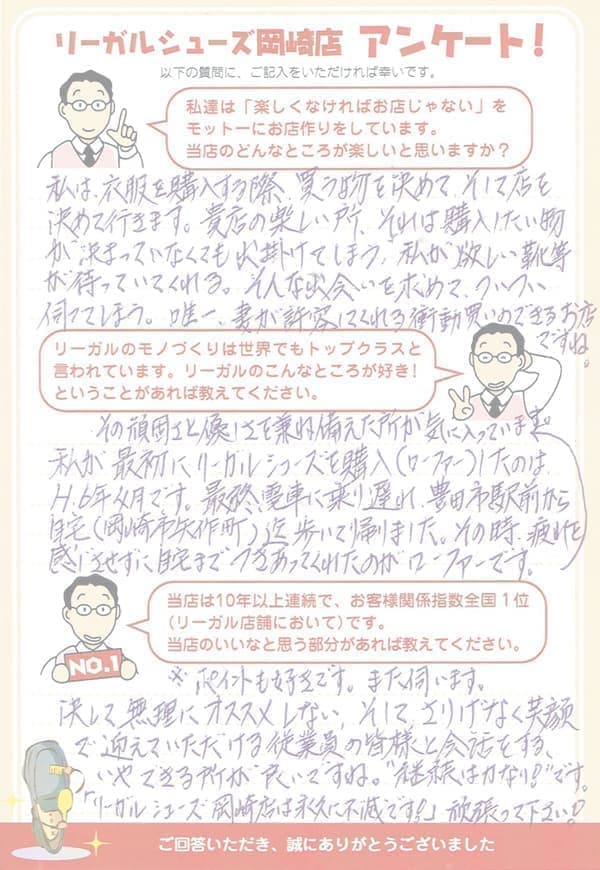 リーガルシューズ岡崎店 アンケート!
以下の質問に、ご記入をいただければ幸いです。
私達は「楽しくなければお店じゃない」を
モットーにお店作りをしています。
当店のどんなところが楽しいと思いますか?
私は、衣服を購入する際、買う物を決めて、そして店を
決めて行きます。貴店の楽しい所、それは購入したい物
が決まっていなくても出掛けてしまう、私が欲しい靴等
が待っていてくれる。そんな出会いを求めて、ついつい
伺ってしまう。唯一、妻が許容してくれる衝動買いのできるお店
ですね。
リーガルのモノづくりは世界でもトップクラスと
言われています。リーガルのこんなところが好き!
ということがあれば教えてください。
その頑固さと優しさを兼ね備えた所が気に入っています。
私が最初にリーガルシューズを購入(ローファー)したのは
H.6年4月です。最終電車に乗り遅れ、豊田市駅前から
自宅(岡崎市矢作町)迄歩いて帰りました。その時、疲れを
感じさせずに自宅までつきあってくれたのがローファーです。
当店は10年以上連続で、お客様関係指数全国1位
(リーガル店舗において)です。
当店のいいなと思う部分があれば教えてください。
NO.1
※ ポイントも好きです。また伺います。
決して無理にオススメしない、そして、さりげなく笑顔
で迎えていただける従業員の皆様と会話をする、
いやできる所が良いですね。"継続は力なり!"です。
「リーガルシューズ岡崎店は永久に不滅です!」頑張って下さい!
ご回答いただき、誠にありがとうございました